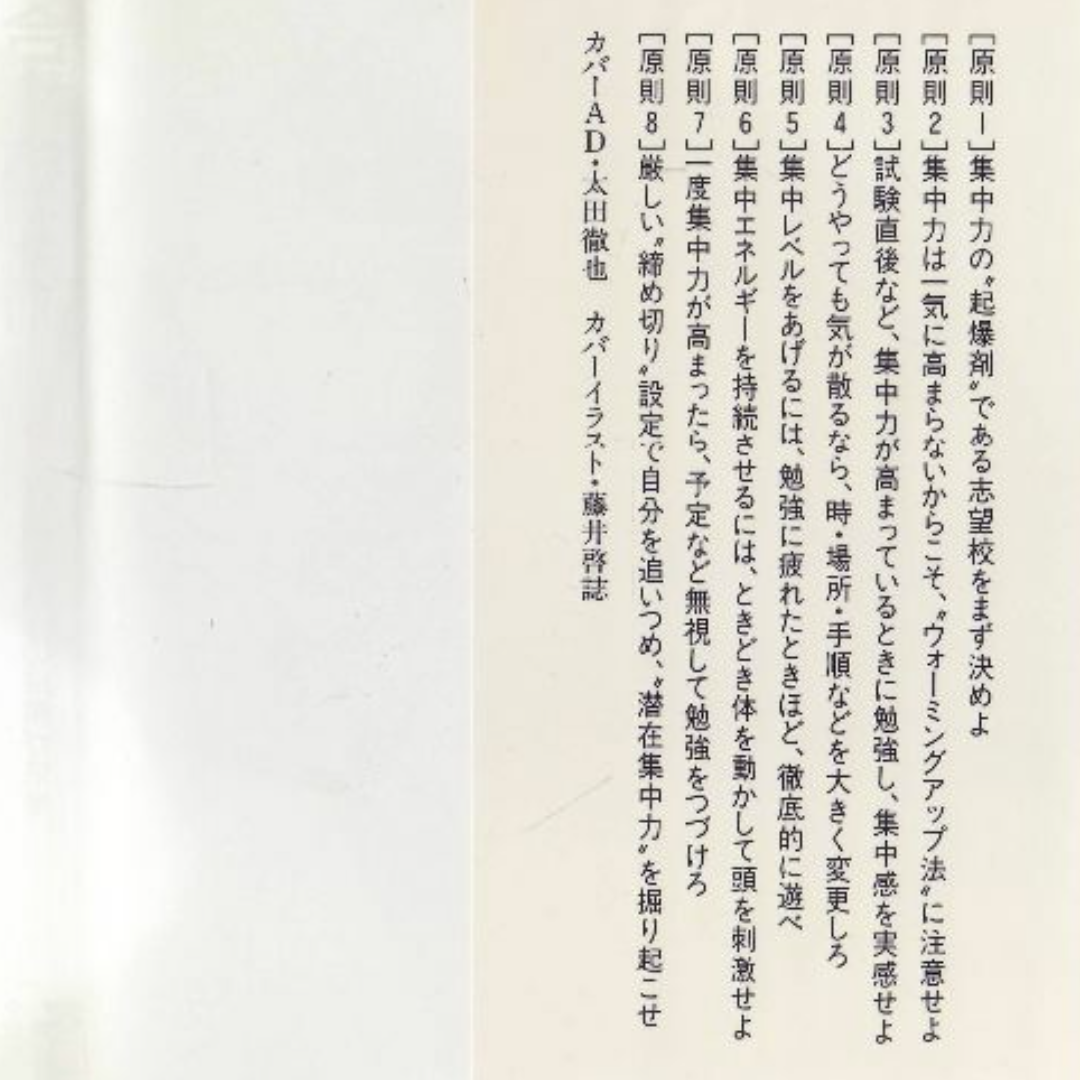 ［原則1］集中力の〝起爆剤〟である志望校をまず決めよ
［原則2］集中力は一気に高まらないからこそ、〝ウォーミングアップ法〟に注意せよ
［原則3］試験直後など、集中力が高まっているときに勉強し、集中感を実感せよ
［原則4］どうやっても気が散るなら、時・場所・手順などを大きく変更しろ
［原則5］集中レベルをあげるには、勉強に疲れたときほど、徹底的に遊べ
［原則6］集中エネルギーを持続させるには、ときどき体を動かして頭を刺激せよ
［原則7］一度集中力が高まったら、予定など無視して勉強をつづけろ
［原則8］厳しい〝締め切り〟設定で自分を追いつめ、〝潜在集中力〟を掘り起こせ
カバーAD・太田徹也　カバーイラスト・藤井啓誌